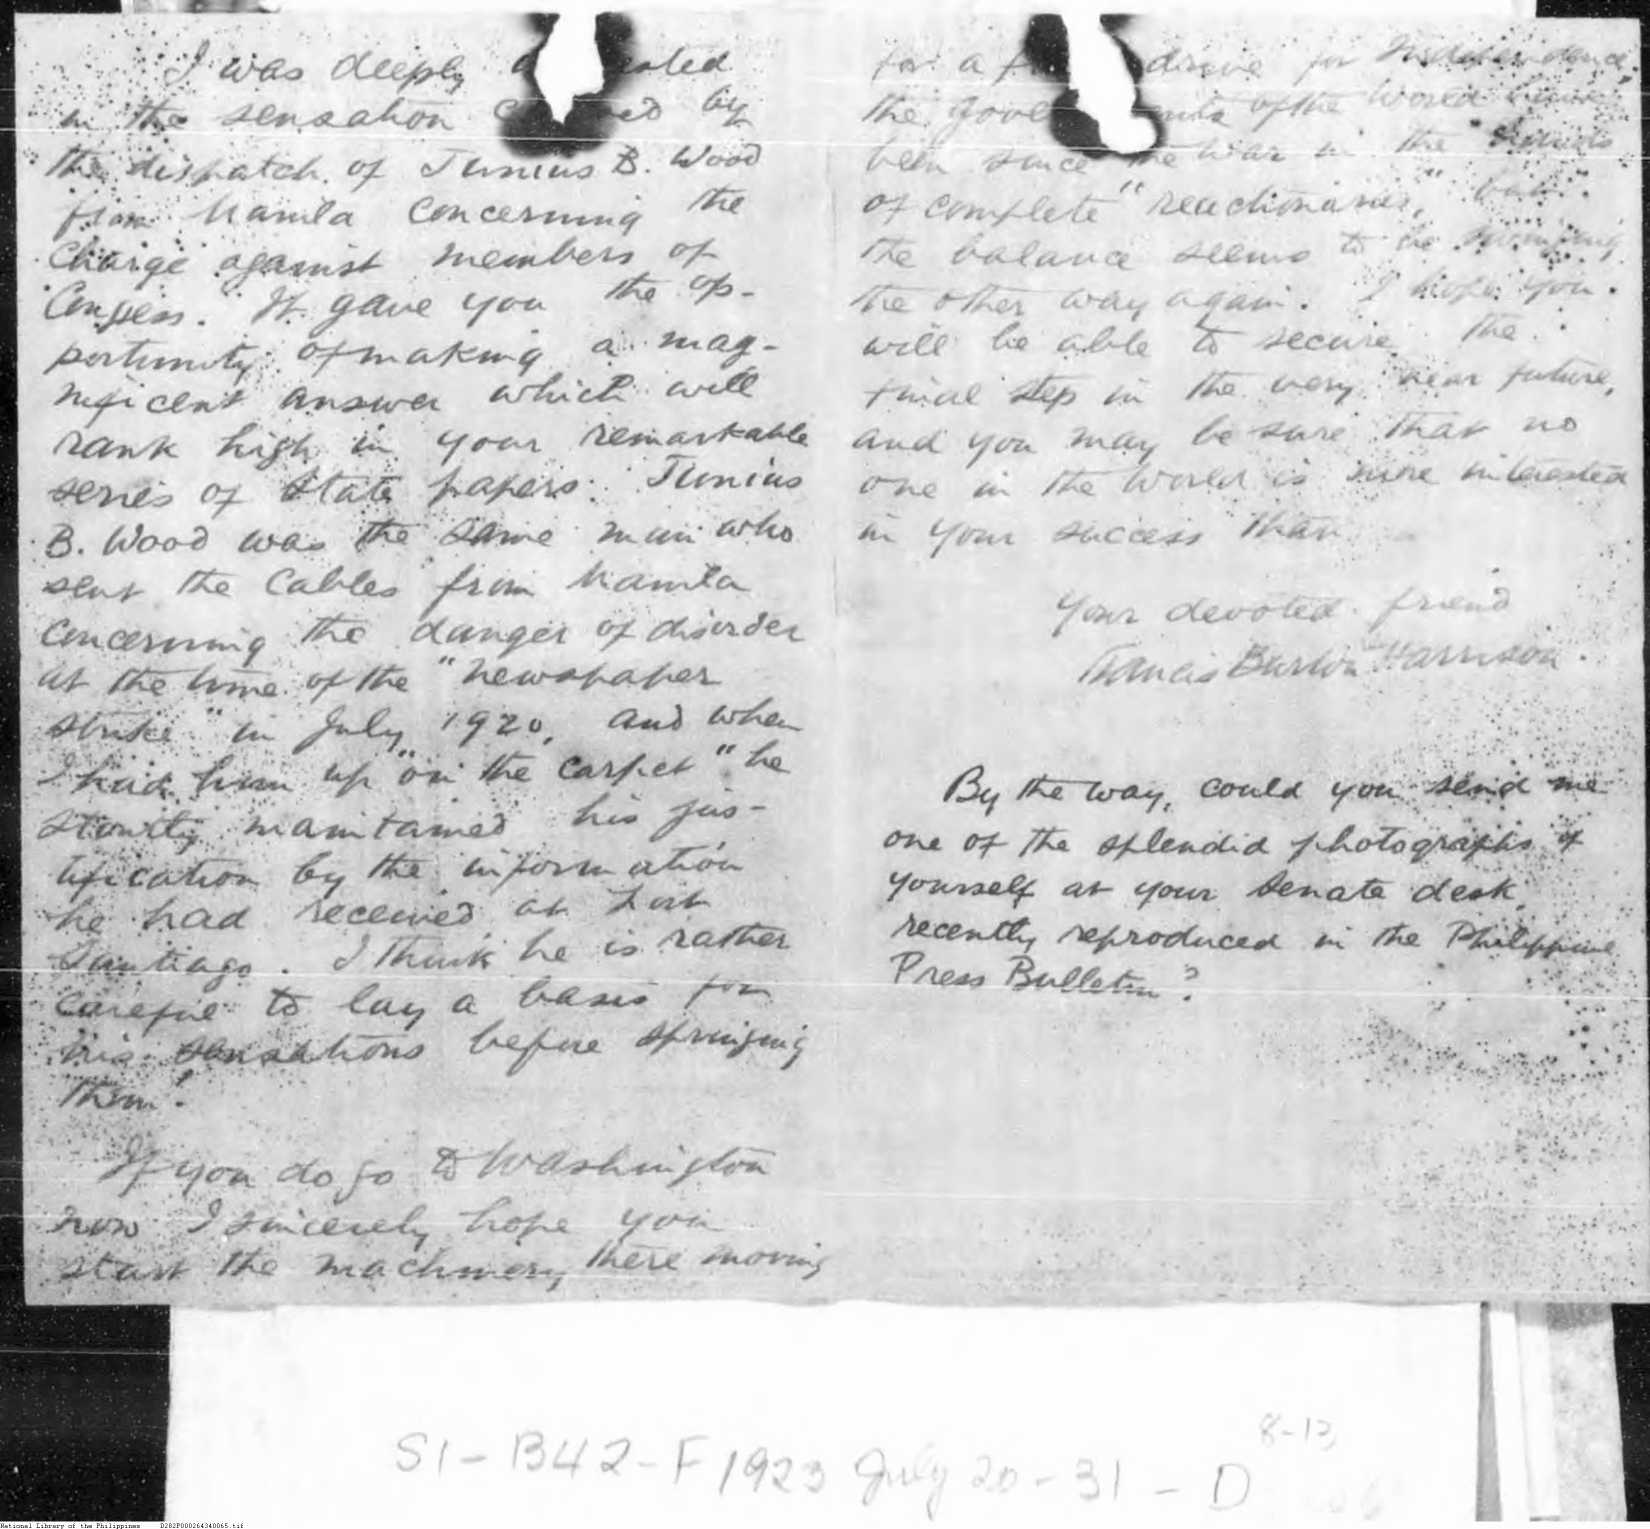 I was deeply
in the sensation by
the dispatch of Junius B. Wood
from Manila concerning the
charge against members of
Congress. It gave you the op-
portunity of making a mag-
nificent answer which will
rank high in your remarkable
series of State papers. Junius
B. Wood was the same man who
sent the cables from Manila
concerning the danger of disorder
at the time of the "newspaper
strike" in July 1920, and when
I had him up "on the carpet" he
stoutly maintained his jus-
tification by the information
he had received at Fort
Santiago. I think he is rather
careful to lay a basis for
his sensations before springing
them!
If you do go to Washington
now I sincerely hope you
start the machinery there moving
for a drive for Independence,
the of the world have
been since the war in the hands
of complete "reactionaries," but
the balance seems to be swinging
the other way again. I hope you
will be able to secure the
final step in the very near future,
and you may be sure that no
one in the world is more interested
in your success than
Your devoted friend
Francis Burton Harrison.
By the way, could you send me
one of the splendid photographs of
yourself at your Senate desk,
recently reproduced in the Philippine
Press Bulletin?
S1-B42-F1923 July 20-31-D 8-13
National Library of the Philippines D282P000264340065.tif